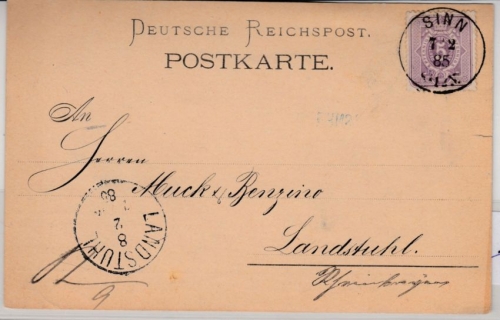 DEUTSCHE REICHSPOST.
POSTKARTE.
SINN
7 2
85
5
An
Herren
Muck & Benzino
Landstuhl.
Rheinbayern
LANDSTUHL
8
2
85